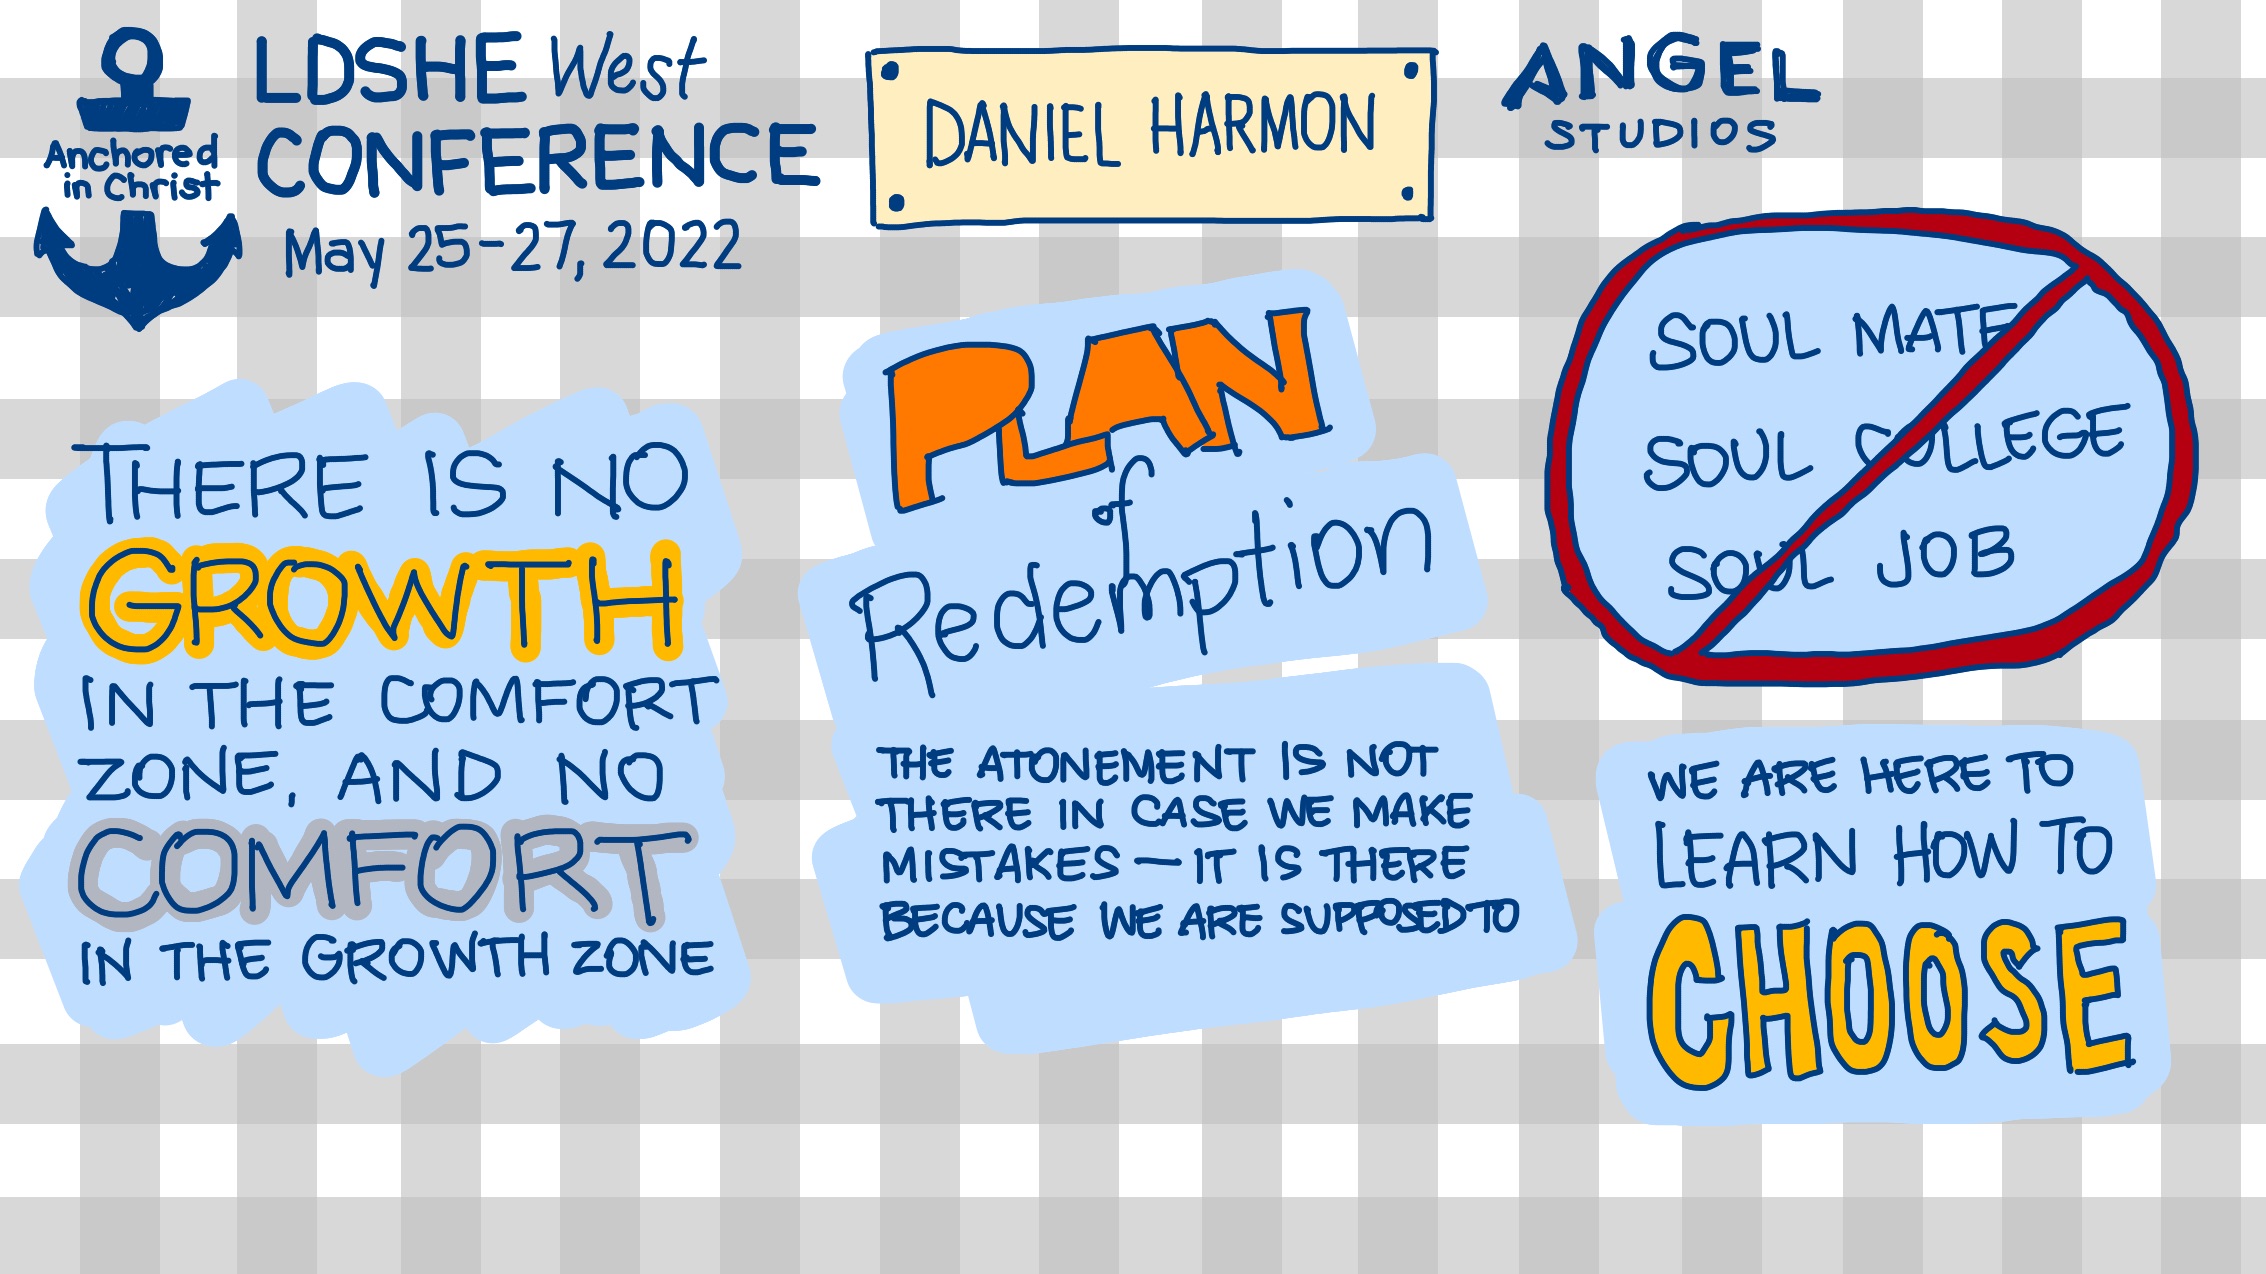 Anchored
in Christ
LDSHE West
CONFERENCE
May 25-27, 2022
DANIEL HARMON
ANGEL
STUDIOS
THERE IS NO
GROWTH
IN THE COMFORT
ZONE, AND NO
COMFORT
IN THE GROWTH ZONE
PLAN
of
Redemption
THE ATONEMENT IS NOT
THERE IN CASE WE MAKE
MISTAKES — IT IS THERE
BECAUSE WE ARE SUPPOSED TO
SOUL MATE
SOUL COLLEGE
SOUL JOB
WE ARE HERE TO
LEARN HOW TO
CHOOSE